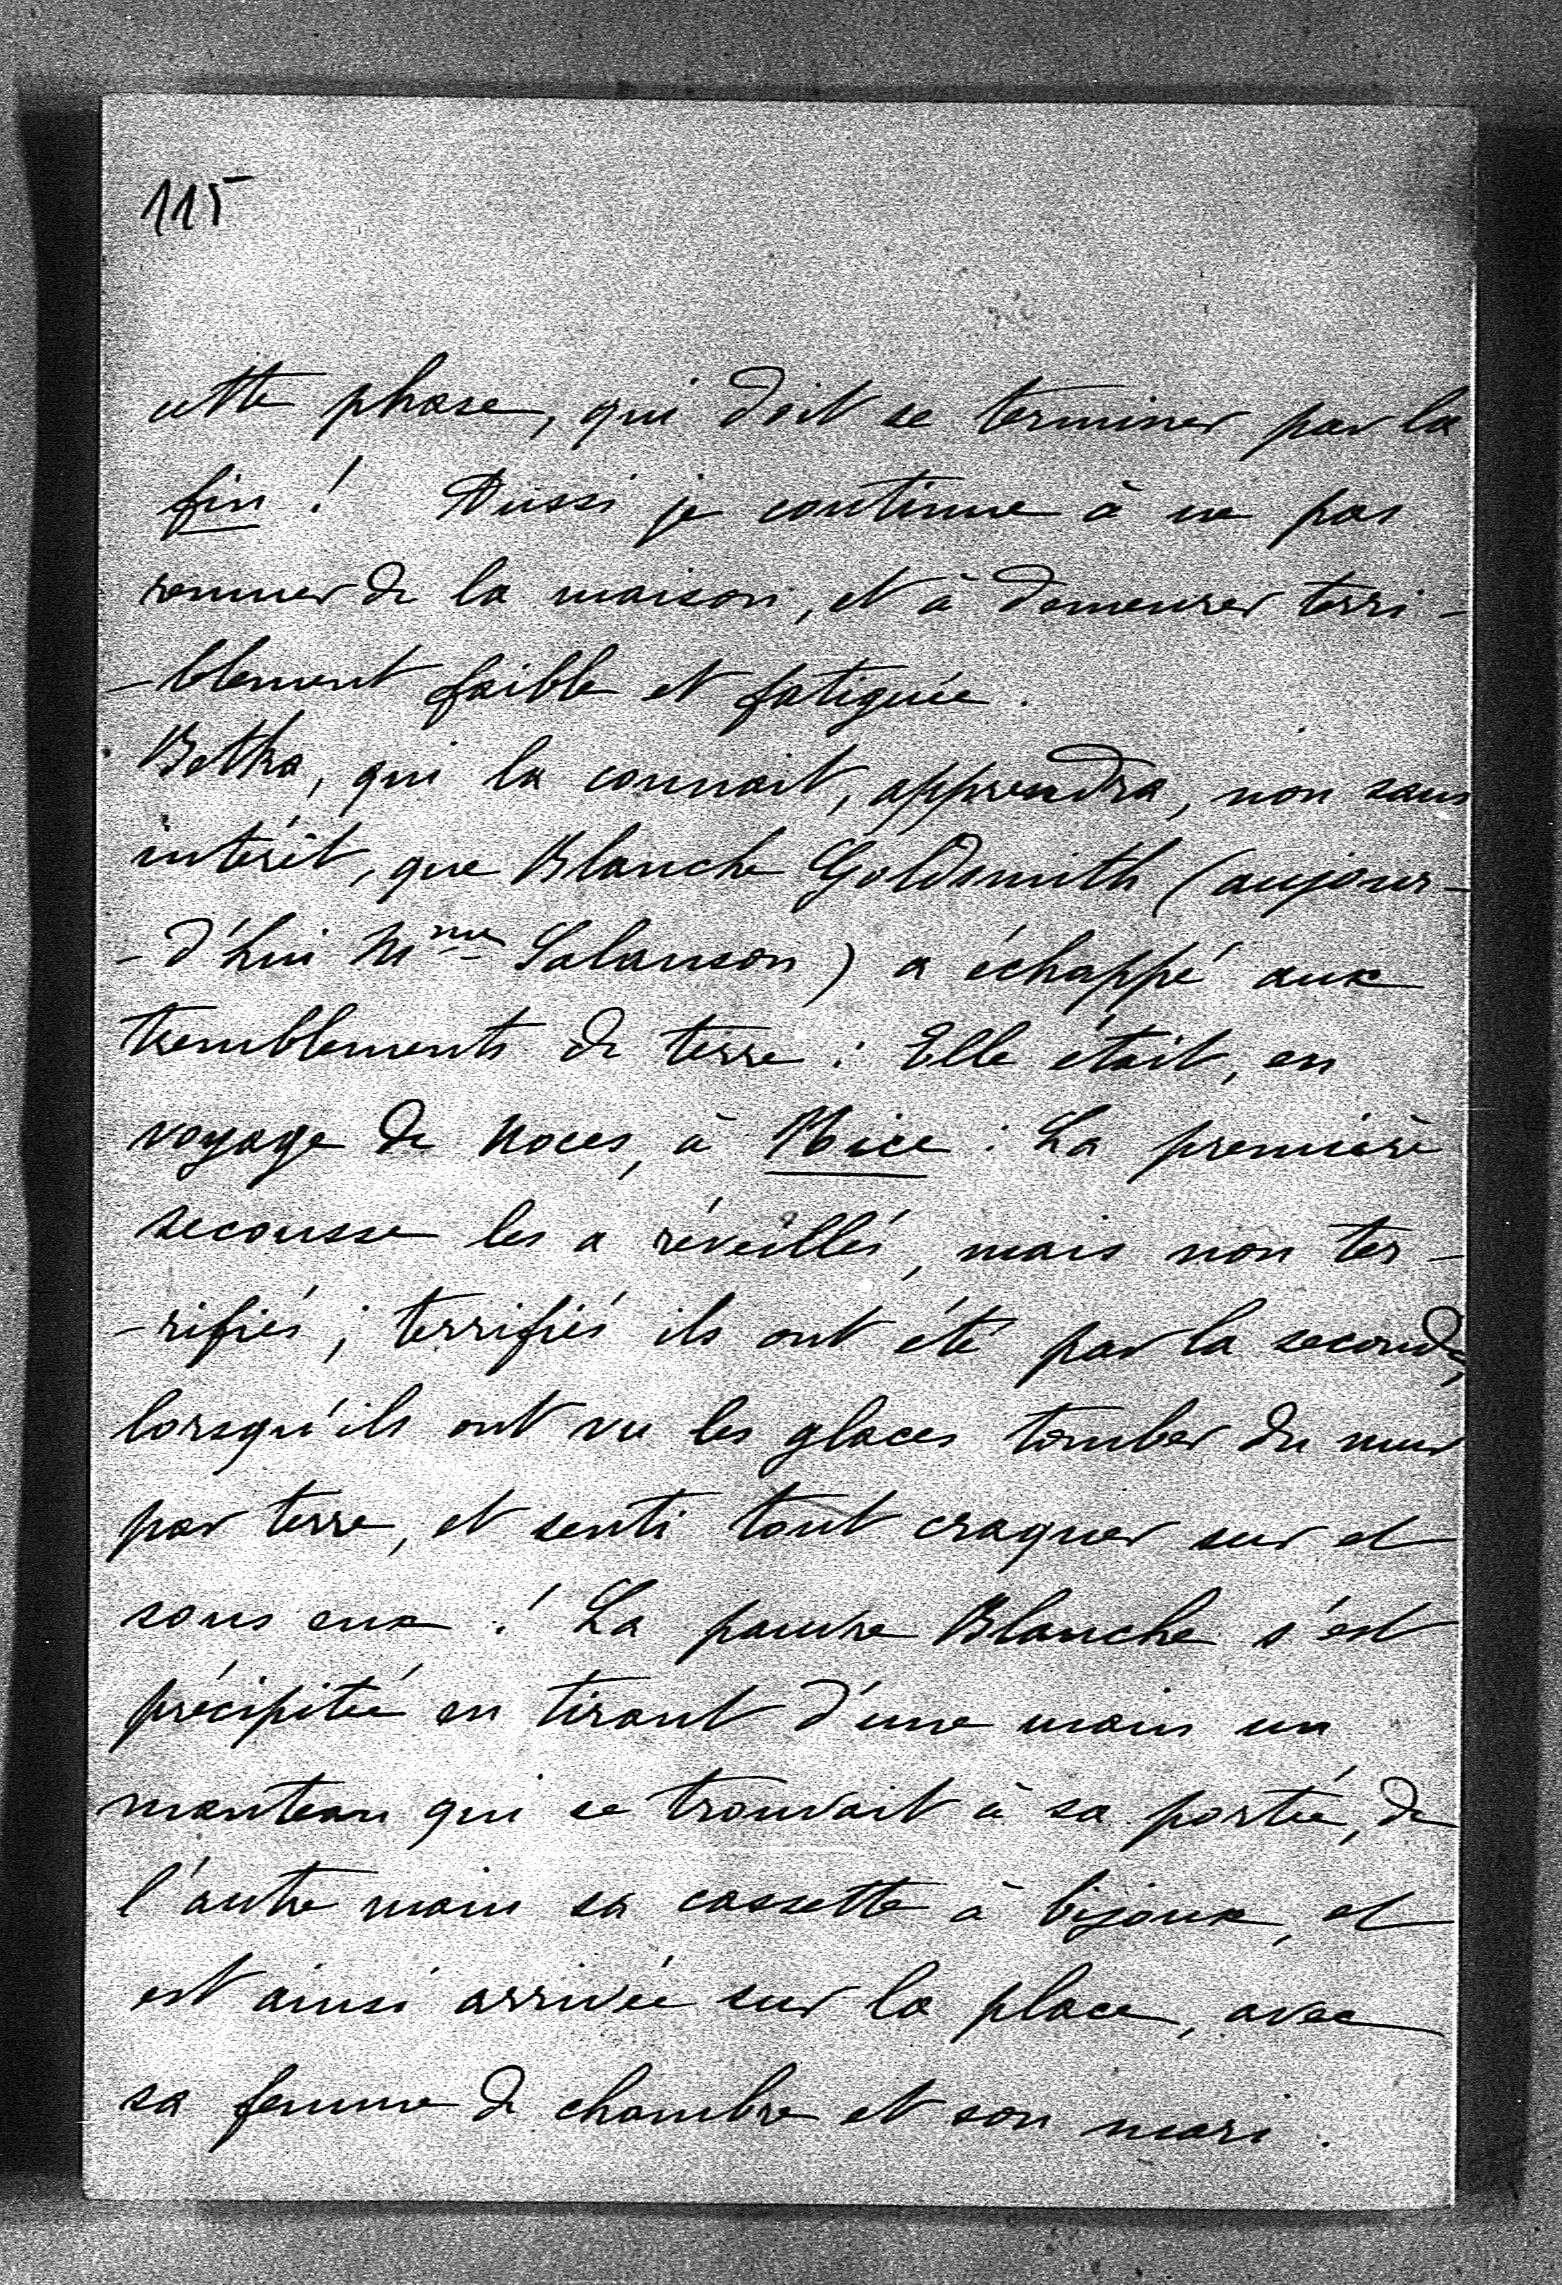 115
cette phase, qui doit se terminer par la
fin ! Aussi je continue à ne pas
remuer de la maison, et à demeurer terri-
-blement faible et fatiguée.
Betka, qui la connait, apprendra, non sans
intérêt, que Blanche Goldsmith (aujour-
-d'hui Mme Salanson) a échappé aux
tremblements de terre : Elle était, en
voyage de noces, à Nice : La première
secousse les a réveillés, mais non ter-
-rifiés ; terrifiés ils ont été par la seconde,
lorsqu'ils ont vu les glaces tomber du mur
par terre, et senti tout craquer sur et
sous eux ! La pauvre Blanche s'est
précipitée en tirant d'une main un
manteau qui se trouvait à sa portée, de
l'autre main sa cassette à bijoux, et
est ainsi arrivée sur la place, avec
sa femme de chambre et son mari.